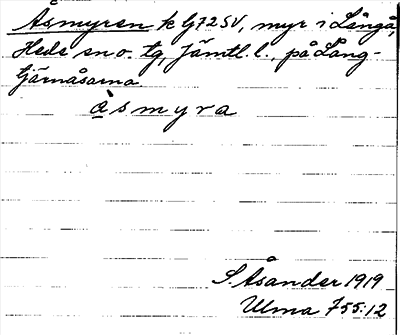 Åsmyren k G72SV, myr i Långå,
Hede sn o. tg, Jämtl. l., på Lång-
tjärnåsarna.
å`smyra
S. Åsander 1919
Ulma 755:12